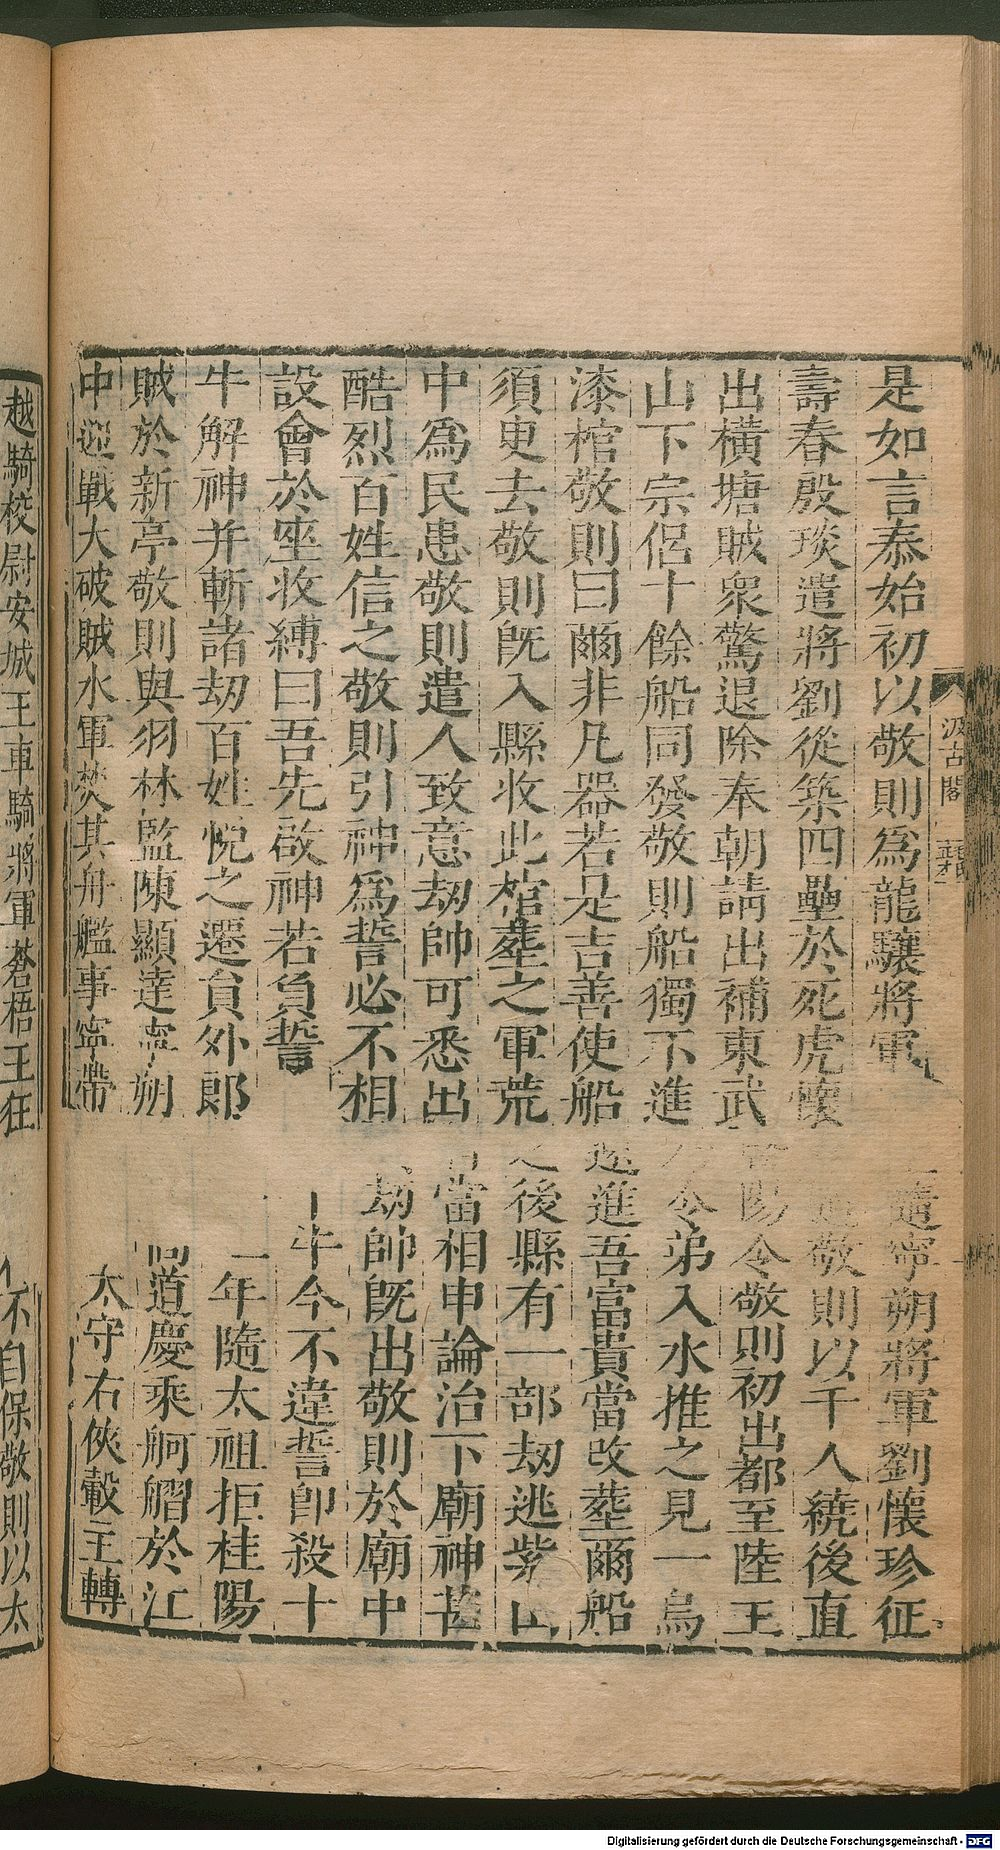 是如言泰始初以敬則爲龍驤將軍隨寧朔將軍劉懷珍征
壽春殷琰遣將劉從築四壘於死虎懷敬則以千人繞後直
出橫塘賊衆驚退除奉朝請出補東武陽令敬則初出都至陸王
山下宗侶十餘船同發敬則船獨不進令弟入水推之見一烏
漆棺敬則曰爾非凡器若是吉善使船速進吾富貴當改塟爾船
須臾去敬則既入縣收此棺塟之軍荒之後縣有一部劫逃紫山
中爲民患敬則遣人致意劫帥可悉出當相申論治下廟神甚
酷烈百姓信之敬則引神爲誓必不相劫帥既出敬則於廟中
設會於座收縛曰吾先啟神若負誓牛今不違誓即殺十
牛解神并斬諸劫百姓悅之遷員外郎年隨太祖拒桂陽
賊於新亭敬則與羽林監陳顯達寧朔道慶乘舸艒於江
中迎戰大破賊水軍焚其舟艦事寧帶太守右俠轂主轉
越騎校尉安城王車騎將軍蒼梧王狂不自保敬則以太
汲古閣
Digitalisierung gefördert durch die Deutsche Forschungsgemeinschaft - DFG